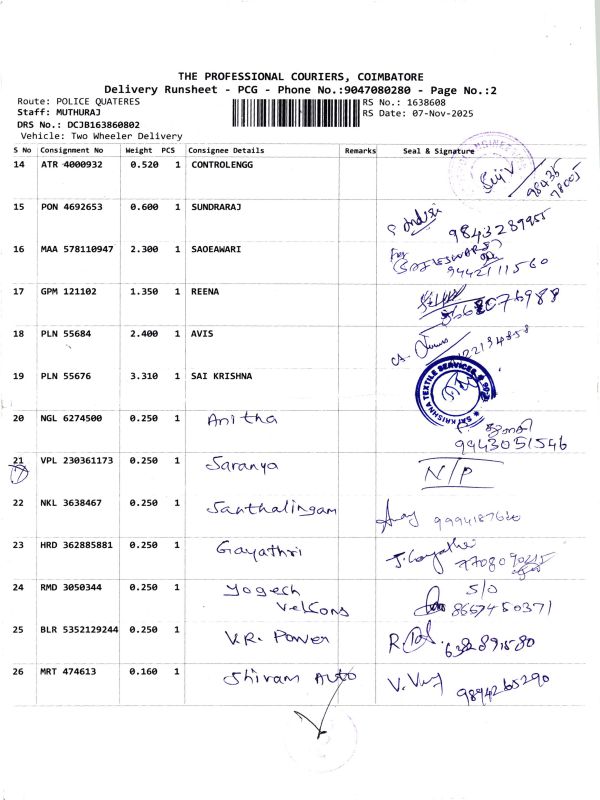 THE PROFESSIONAL COURIERS, COIMBATORE
Delivery Runsheet - PCG - Phone No.:9047080280 - Page No.:2
Route: POLICE QUATERES
RS No.: 1638608
Staff: MUTHURAJ
RS Date: 07-Nov-2025
DRS No.: DCJB163860802
Vehicle: Two Wheeler Delivery
S No Consignment No Weight PCS Consignee Details Remarks Seal & Signature
14 ATR 4000932 0.520 1 CONTROLENGG
15 PON 4692653 0.600 1 SUNDRARAJ
9843289955
16 MAA 578110947 2.300 1 SAOEAWARI For
9442111560
17 GPM 121102 1.350 1 REENA
18 PLN 55684 2.400 1 AVIS
19 PLN 55676 3.310 1 SAI KRISHNA
SAI KRISHNA TEXTILE SERVICES
20 NGL 6274500 0.250 1 Anitha
9943051546
21 VPL 230361173 0.250 1 Saranya N/P
22 NKL 3638467 0.250 1 Santhalingam 9994187620
23 HRD 362885881 0.250 1 Gayathri J. Gayathri
24 RMD 3050344 0.250 1 Yogesh S/O
Velcons 8667450371
25 BLR 5352129244 0.250 1 V.R. Power
26 MRT 474613 0.160 1 Shivam Auto
9894265290